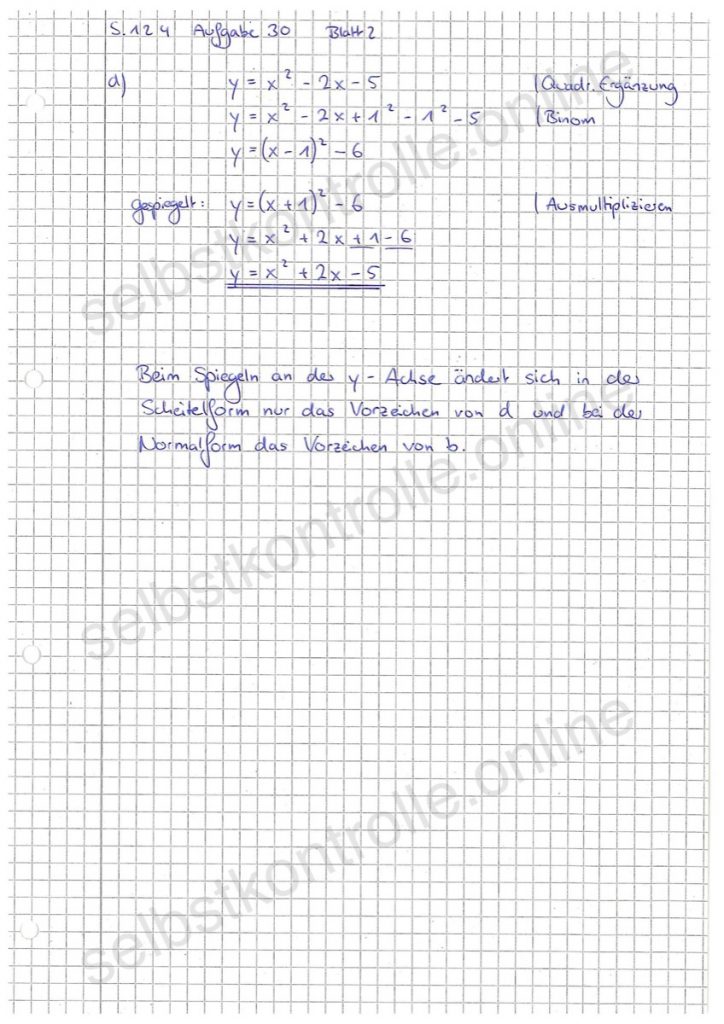 S. 124 Aufgabe 30 Blatt 2
a) y = x² - 2x - 5 | Quadr. Ergänzung
y = x² - 2x + 1² - 1² - 5 | Binom
y = (x - 1)² - 6
gespiegelt: y = (x + 1)² - 6 | Ausmultiplizieren
y = x² + 2x + 1 - 6
y = x² + 2x - 5
Beim Spiegeln an der y - Achse ändert sich in der
Scheitelform nur das Vorzeichen von d und bei der
Normalform das Vorzeichen von b.
selbstkontrolle.online
selbstkontrolle.online
selbstkontrolle.online